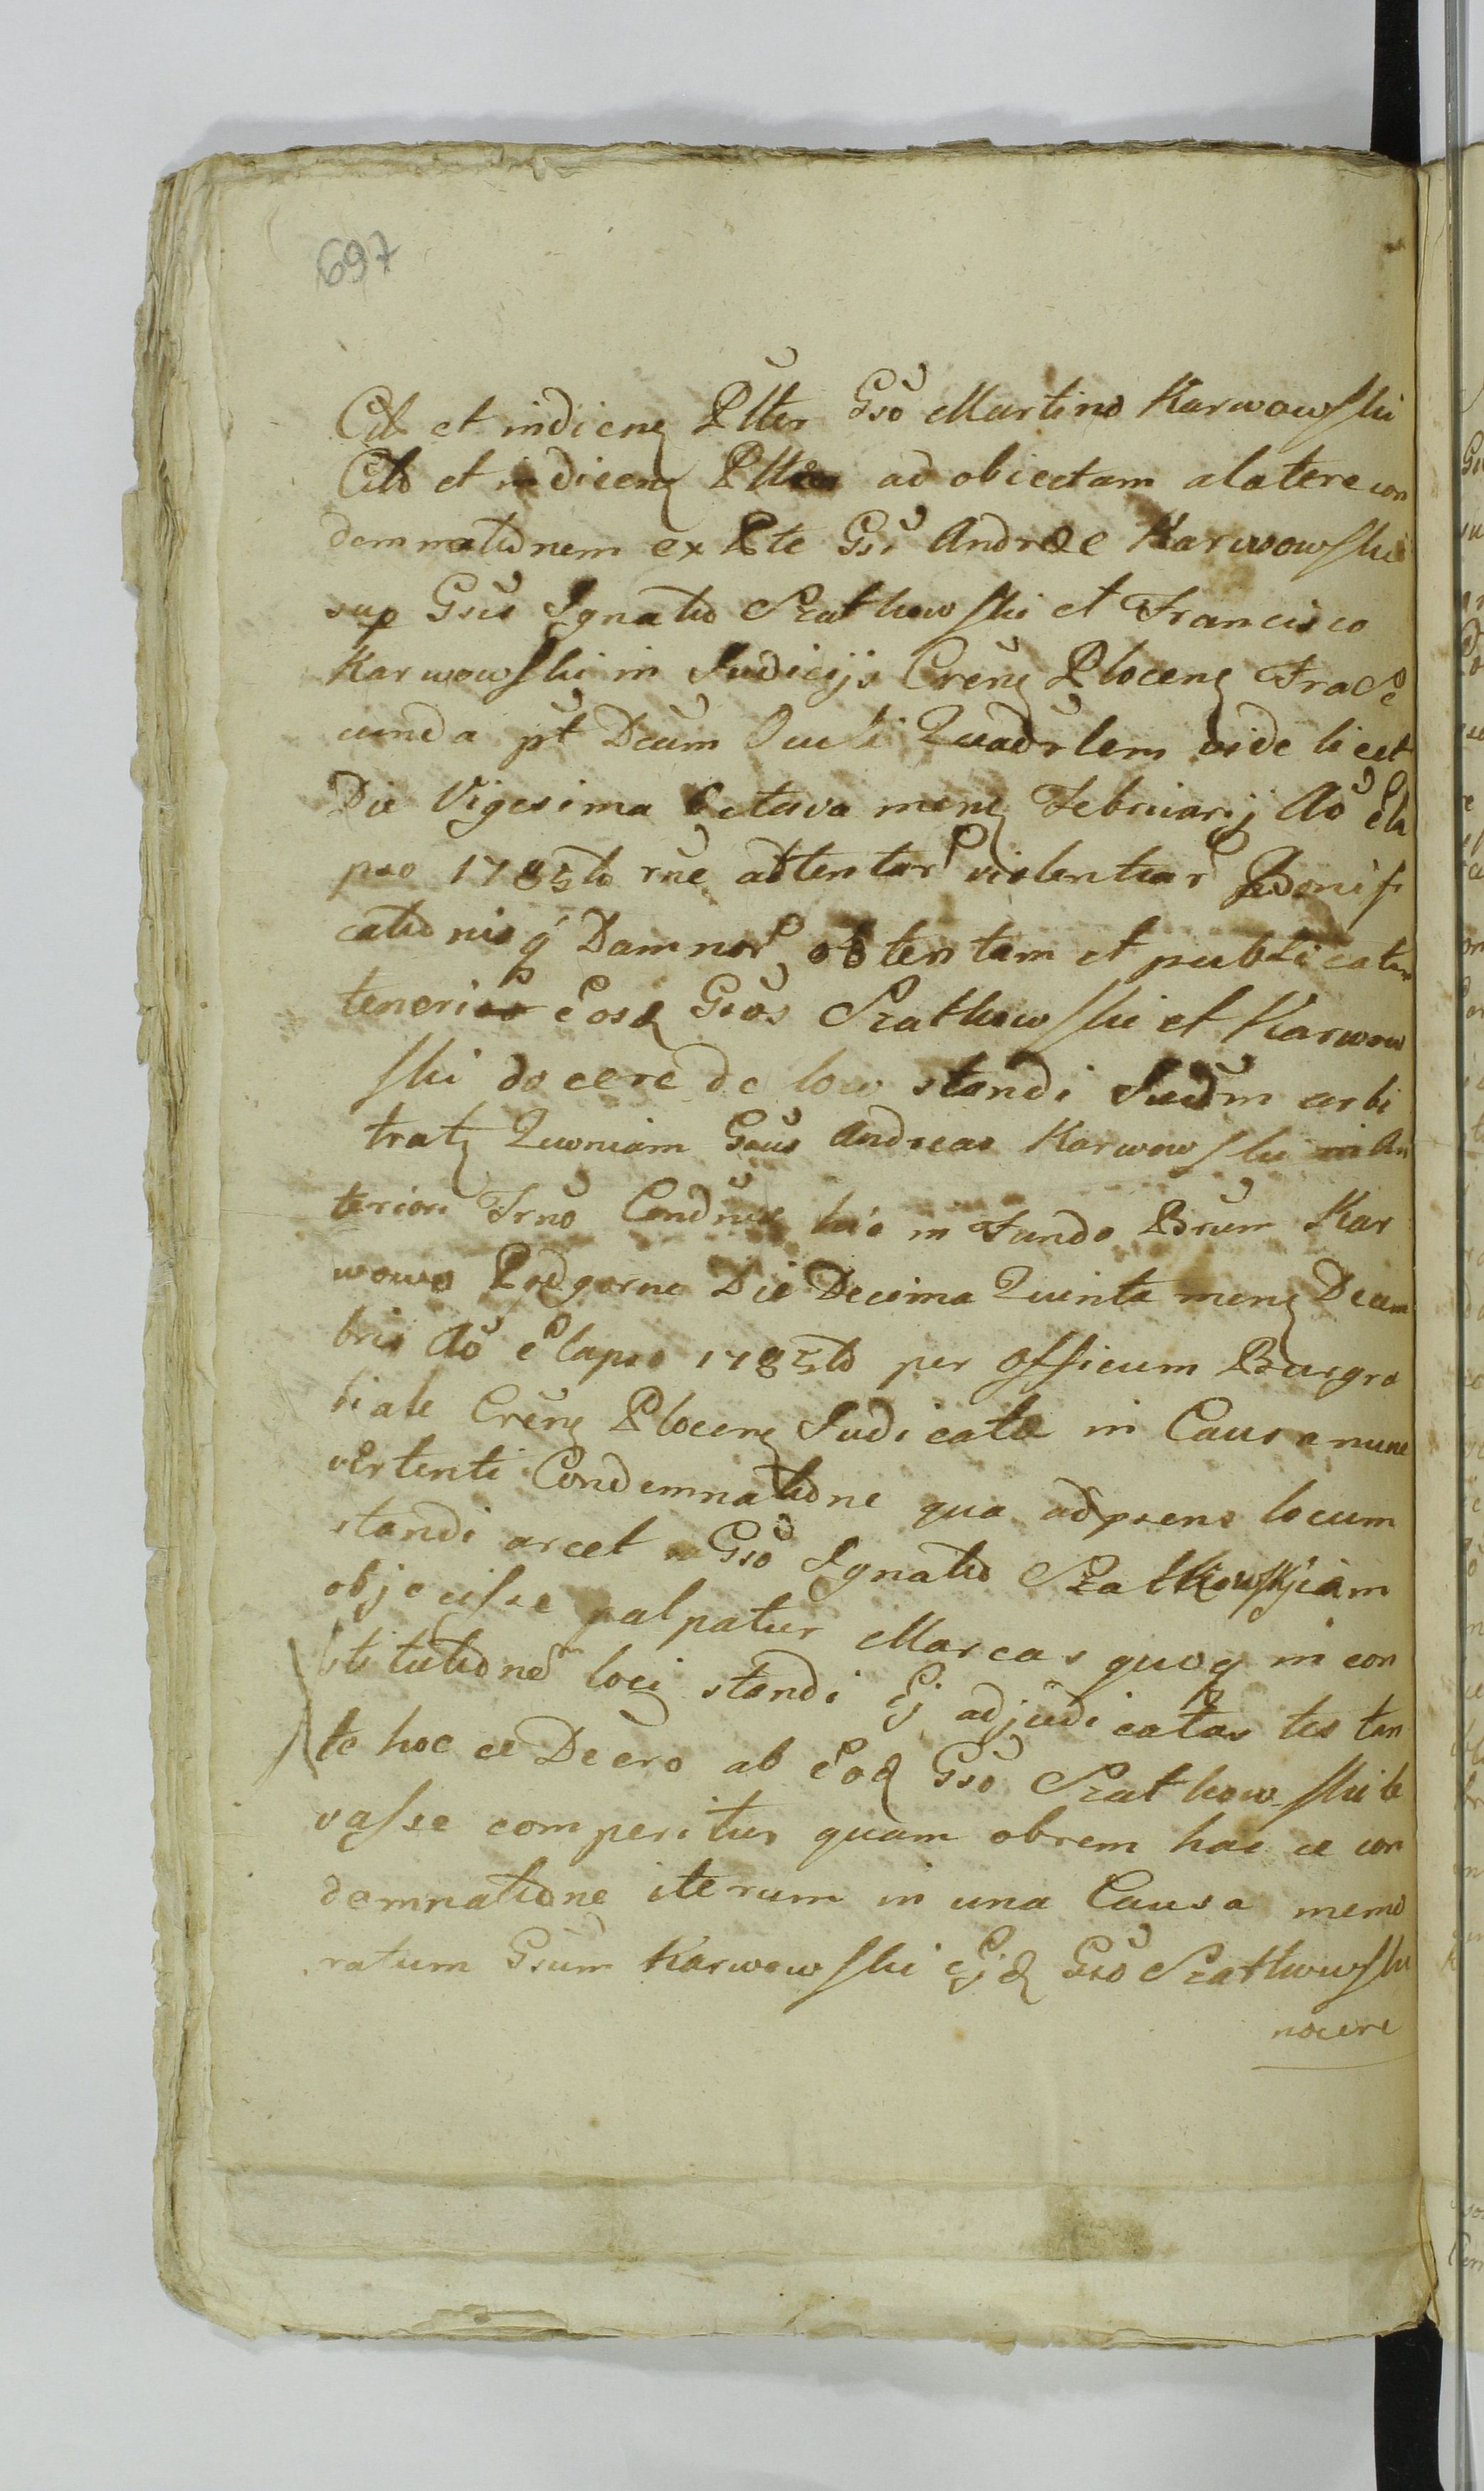 697
Cit et indicen Ptter Gso Martino Karwowski
Cit et indicen ad obiectam a latere con
demnationem ex Pte Gsi Andreae Karwowski
sup Gsis Ignatio Szatkowski et Francisco
Karwowski in Judicijs Cren Plocen Fra Se
cunda pt Dcum Oculi Quadrlem vide licet
Die Vigesima Octava men Februarij Ao Ela
pso 1785to rne attentar violentiar Bonifi
cationis q Damnor obtentam et publicatam
teneri Eosd Gsos Szatkowski et Karwow
ski docere de loco standi Judm arbi
trat Quoniam Gsus Andreas Karwowski in An
teriori Trno Condnis hic in Fundo Brum Kar
wowo Podgorne Die Decima Quinta men Decem
bris Ao Elapso 1785to per officium Burgra
biale Cren Plocen Judicata in Causa nunc
vertenti Condemnatione qua ad psens locum
standi arcet Gso Ignatio Szatkowski jam
objecisse palpatur Marcas quoq in con
stitutione loci standi Ej adjudicatas tes tan
te hoc ce Decro ab Eod Gso Szatkowski le
vasse comperitur quam obrem hac ce con
demnatione iterum in una Causa memo
ratum Gsum Karwowski Ejd Gso Szatkowski
nocere